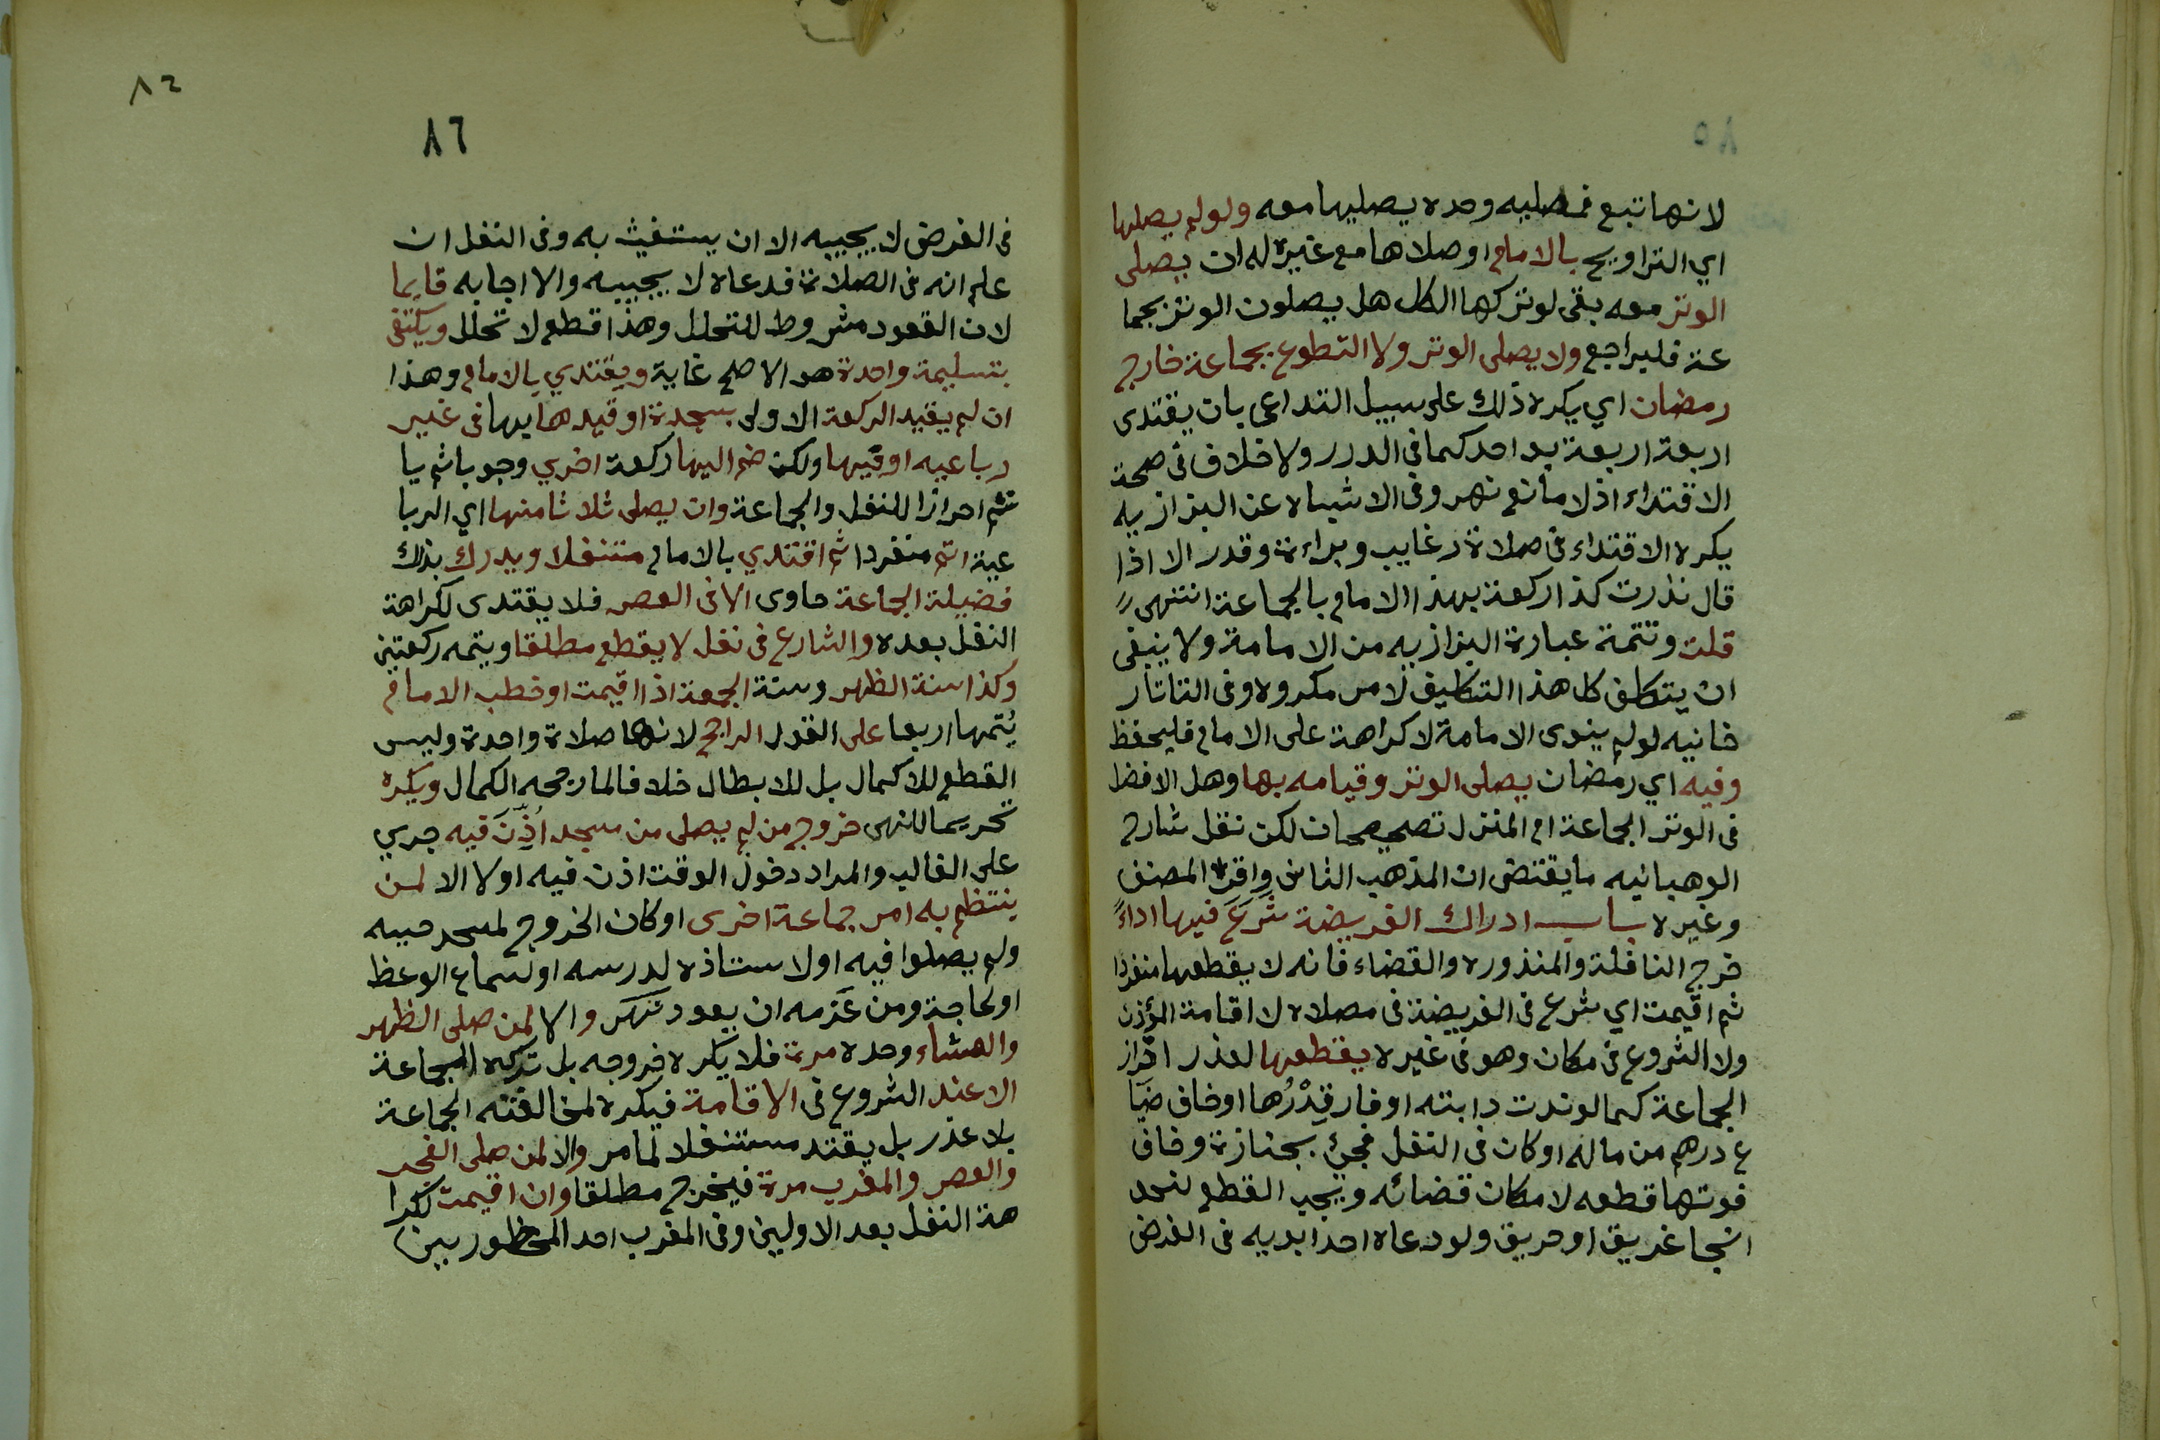 ٨٥
لانها تبع فمصليه وحده يصليها معه ولو لم يصلها
اي التراويح بالامام او صلاها مع غيره له ان يصلى
الوتر معه بقى لو تركها الكل هل يصلون الوتر بجما
عة فليراجع ولا يصلى الوتر ولا التطوع بجماعة خارج
رمضان اي يكره ذلك على سبيل التداعى بان يقتدى
اربعة اربعة بواحد كما فى الدرر ولا خلاف فى صحة
الاقتداء اذ لا مانع نهر وفى الاشباه عن البزازيه
يكره الاقتداء فى صلاة رغايب وبراءة وقدر الا اذا
قال نذرت كذا ركعة بهذا الامام بالجماعة انتهى
قلت وتتمة عبارة البزازيه من الامامة ولا ينبغى
ان يتكلف كل هذا التكليف لامر مكروه وفى التاتار
خانيه لو لم ينوى الامامة لا كراهة على الامام فليحفظ
وفيه اي رمضان يصلى الوتر وقيامه بها وهل الافضل
فى الوتر الجماعة ام المنزل تصحيحان لكن نقل شارح
الوهبانيه ما يقتضى ان المذهب الثانى واقره المصنف
وغيره باب ادراك الفريضة شَرَعَ فيها اداءً
خرج النافلة والمنذوره والقضاء فانه لا يقطعها منفردا
ثم اقيمت اي شرع فى الفريضة فى مصلاه لا اقامة المؤذن
ولا الشروع فى مكان وهو فى غيره يقطعها لعذر احراز
الجماعة كما لو ندت دابته او فار قِدْرُها او خاف ضيا
ع درهم من ماله او كان فى النفل فجئ بجنازة وخاف
فوتها قطعه لامكان قضائه ويجب القطع لنحو
انجا غريق او حريق ولو دعاه احد ابويه فى الفرض
٨٢
٨٦
فى الفرض لا يجيبه الا ان يستغيث به وفى النفل ان
علم انه فى الصلاة فدعاه لا يجيبه والا اجابه قايما
لان القعود مشروط للتحلل وهذا قطع لا تحلل ويكتفى
بتسليمة واحدة هو الاصح غاية ويقتدي بالامام وهذا
ان لم يقيد الركعة الاولى بسجدة او قيدها بها فى غير
رباعيه او فيها ولكن ضم اليها ركعة اخري وجوبا ثم يا
تثم احرازا للنفل والجماعة وان يصلى ثلاثا منها اي الربا
عية اتم منفردا ثم اقتدي بالامام متنفلا ويدرك بذلك
فضيلة الجماعة حاوى الا فى العصر فلا يقتدى لكراهة
النفل بعده والشارع فى نفل لا يقطع مطلقا ويتمه ركعتين
وكذا سنة الظهر وسنة الجمعة اذا اقيمت او خطب الامام
يُتمها اربعا على القول الراجح لانها صلاة واحدة وليس
القطع للاكمال بل للابطال خلافا لما رجحه الكمال ويكره
تحريما للنهى خروج من لم يصلى من مسجد اُذِّنَ فيه جري
على الغالب والمراد دخول الوقت اذن فيه اولا الا لمن
ينتظم به امر جماعة اخرى او كان الخروج لمسجد حييه
ولم يصلوا فيه او لاستاذه لدرسه او لسماع الوعظ
او لحاجة ومن عَزمه ان يعود نَهَر والا لمن صلى الظهر
والعشاء وحده مرة فلا يكره خروجه بل تركه للجماعة
الا عند الشروع فى الاقامة فيكره لمخالفته الجماعة
بلا عذر بل يقتد مستنفلا لمامر والا لمن صلى الفجر
والعصر والمغرب مرة فيخرج مطلقا وان اقيمت لكرا
هة النفل بعد الاوليين وفى المغرب احد المحظورين